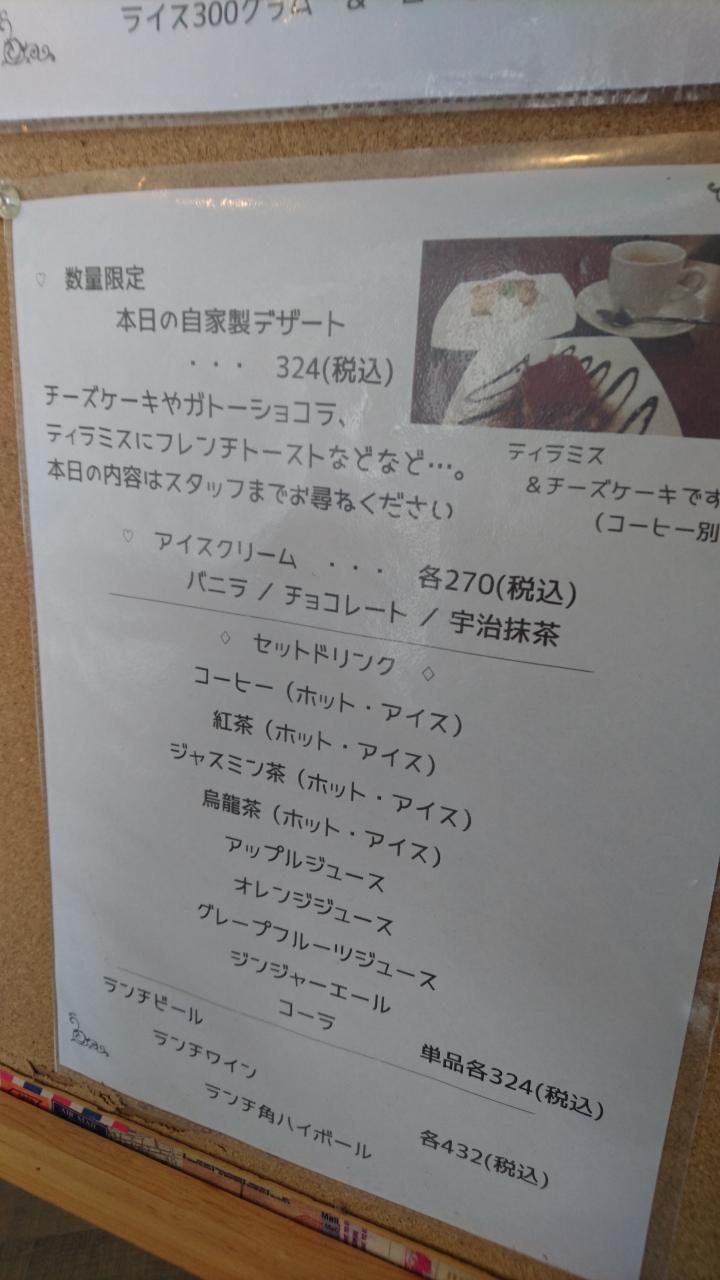 ライス300グラム &
♡ 数量限定
本日の自家製デザート
・・・ 324(税込)
チーズケーキやガトーショコラ、
ティラミスにフレンチトーストなどなど…。
本日の内容はスタッフまでお尋ねください
ティラミス
&チーズケーキです
(コーヒー別
♡ アイスクリーム ・・・ 各270(税込)
バニラ / チョコレート / 宇治抹茶
♢ セットドリンク ♢
コーヒー(ホット・アイス)
紅茶(ホット・アイス)
ジャスミン茶(ホット・アイス)
烏龍茶(ホット・アイス)
アップルジュース
オレンジジュース
グレープフルーツジュース
ジンジャーエール
コーラ
単品各324(税込)
ランチビール
ランチワイン
ランチ角ハイボール
各432(税込)
AIR MAIL
Mail